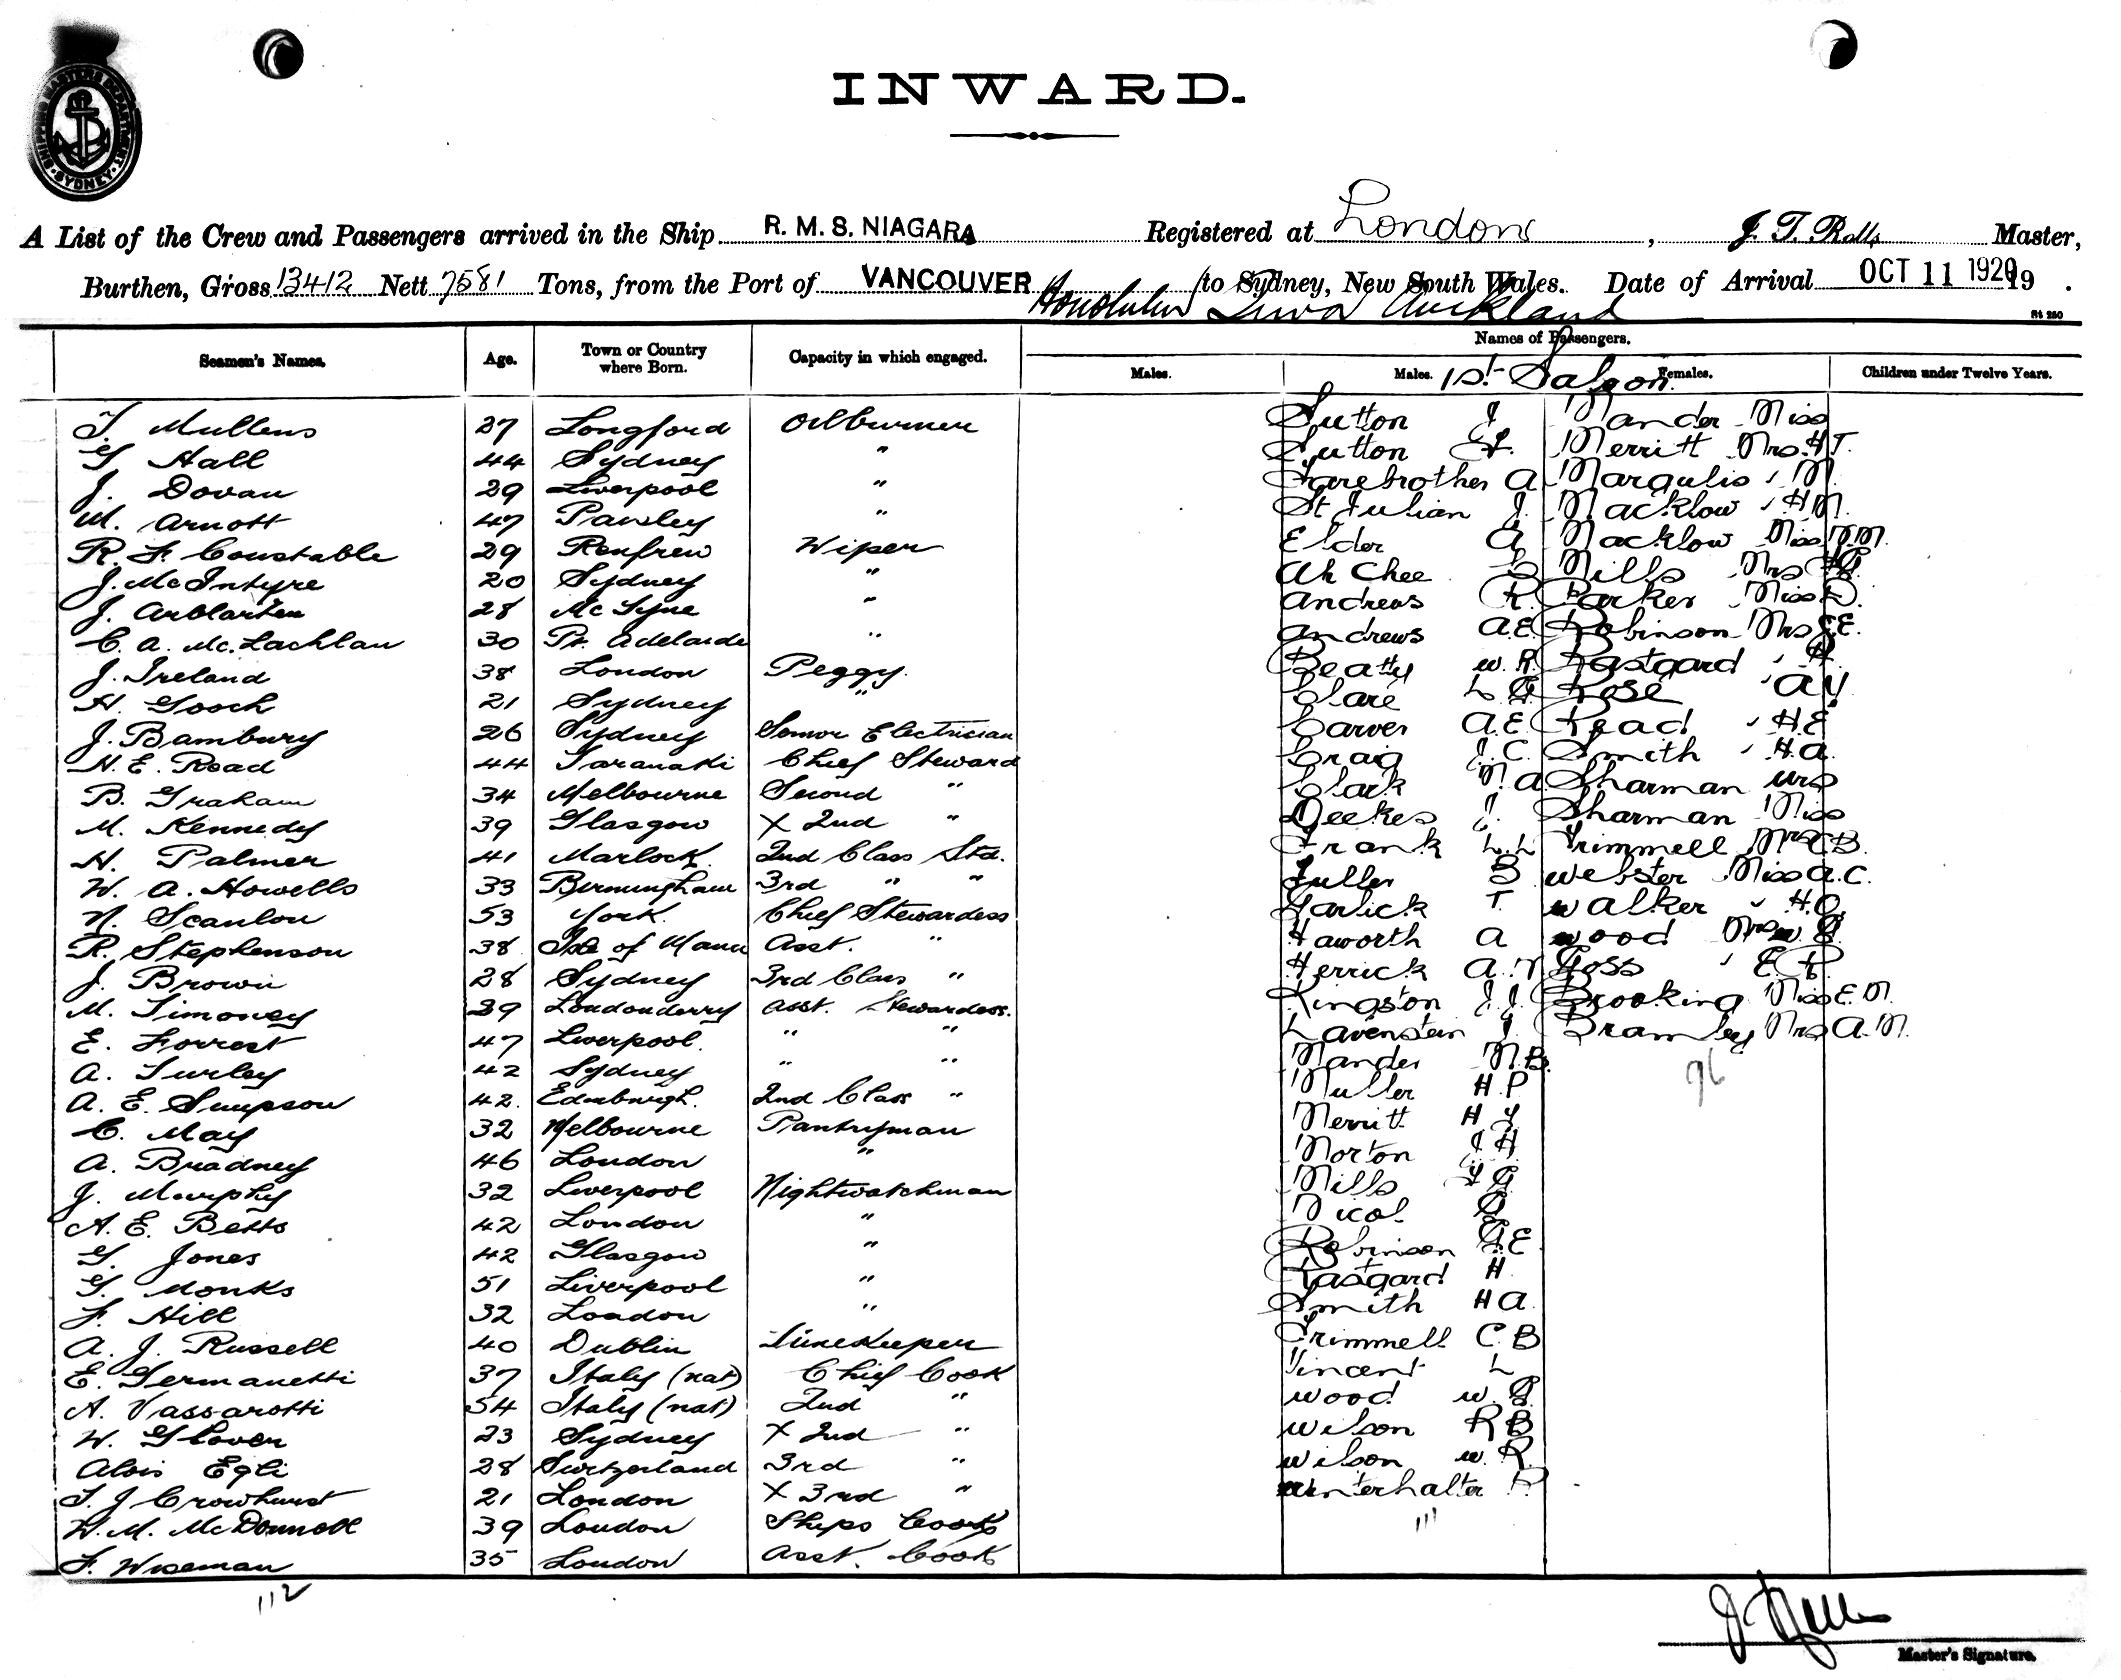 SHIPPING MASTERS DEPARTMENT SYDNEY
INWARD.
A List of the Crew and Passengers arrived in the Ship R. M. S. NIAGARA Registered at London, J. T. Rolls Master,
Burthen, Gross 13412 Nett 7581 Tons, from the Port of VANCOUVER Honolulu Suva Auckland to Sydney, New South Wales. Date of Arrival OCT 11 1920 19 .
St 280
Seamen's Names. Age. Town or Country where Born. Capacity in which engaged. Names of Passengers.
Males. Males. 1st Saloon Females. Children under Twelve Years.
T. Mullens 27 Longford Oilburner Sutton J Mander Miss
G Hall 44 Sydney " Sutton Merritt Mrs H T.
J. Dovan 29 Liverpool " Farebrother A Margulis " M.
M. Arnott 47 Paisley " St Julian J. Macklow " H M.
R. F. Constable 29 Renfrew Wiper Elder A Macklow Miss M.M.
J. McIntyre 20 Sydney " Ah Chee Mills Mrs
J. 28 " Andrews R. Parker Miss D.
C. A. McLachlan 30 Pt. Adelaide " Andrews A.E. Robinson Mrs E.
J. Ireland 38 London Peggy. Beatty W. R. Rastgard " H.
H. Gooch 21 Sydney " Clare L G Rose " A Y
J. Bambury 26 Sydney Senior Electrician Carver A.E. Read " H.E
H. E. Road 44 Taranaki Chief Steward Craig J. C. Smith " H.A.
B. Graham 34 Melbourne Second " Clark N. A Sharman Mrs
M. Kennedy 39 Glasgow X 2nd " Deekes J. Sharman Miss
H. Palmer 41 2nd Class Std. Frank L. L Trimmell Mrs C B.
W. A. Howells 33 Birmingham 3rd " " Fuller B Webster Miss A. C.
N. Scanlon 53 York. Chief Stewardess Garlick T. Walker " H.O.
R. Stephenson 38 Isle of Mann Asst. " Haworth A Wood Mrs W G
J. Brown 28 Sydney 3rd Class " Herrick A. N Goss " E R
M. Timoney 39 Londonderry Asst. Stewardess. Kingston J. J. Brooking Miss E. M.
E. Forrest 47 Liverpool. " " Lavenstein J. Bramley Mrs A. M.
A. Turley 42 Sydney " " Mander M. B.
A. E. Simpson 42. Edinburgh. 2nd Class " Muller H. P 96
C. May 32 Melbourne Pantryman Merritt H
A. Bradney 46 London " Morton J H
J. Murphy 32 Liverpool Nightwatchman Mills
A. E. Betts 42 London " Nicol G
G. Jones 42 Glasgow " Robinson G.E.
G. Monks 51 Liverpool " Rastgard H
F. Hill 32 London " Smith H A.
A. J. Russell 40 Dublin Timekeeper Trimmell C. B
E. Germanetti 37 Italy (nat) Chief Cook Vincent L
A. Vassarotti 54 Italy (nat) 2nd " Wood W. G.
W. Glover 23 Sydney X 2nd " Wilson R B
Alois Egli 28 Switzerland 3rd " Wilson W. R.
T. J Crowhurst 21 London X 3rd " Winterhalter
W. M. McDonnell 39 London Ships Cook 111
F. Wiseman 35 London Asst. Cook
112
Master's Signature.